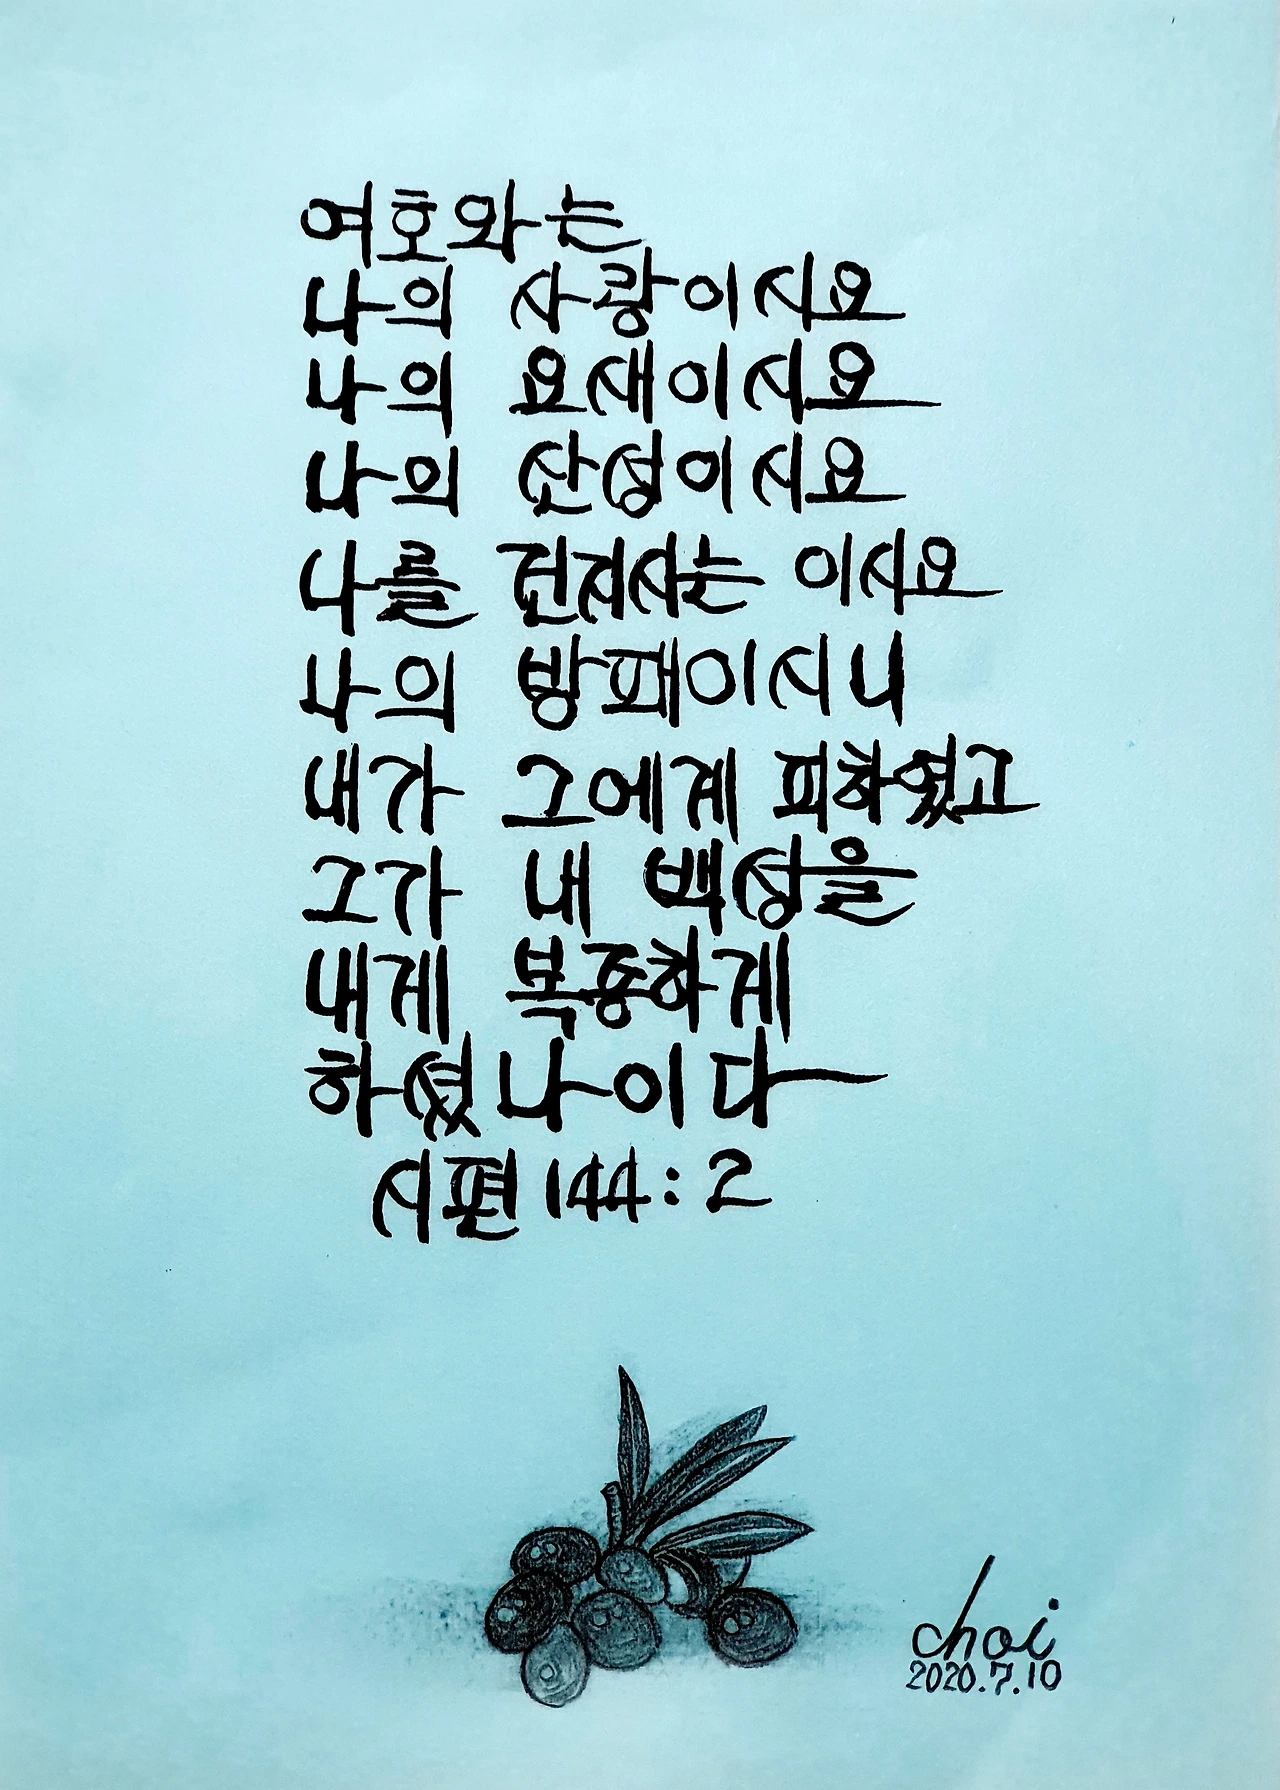 여호와는
나의 사랑이시요
나의 요새이시요
나의 산성이시요
나를 건지시는 이시요
나의 방패이시니
내가 그에게 피하였고
그가 내 백성을
내게 복종하게
하셨나이다
시편 144:2
choi
2020.7.10